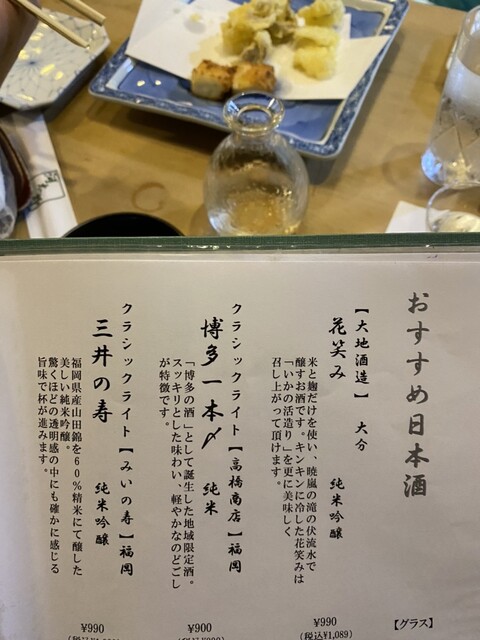 おすすめ日本酒
【グラス】
【大地酒造】 大分
花笑み 純米吟醸
米と麹だけを使い、暁嵐の滝の伏流水で
醸すお酒です。キンキンに冷した花笑みは
「いかの活造り」を更に美味しく
召し上がって頂けます。
¥990
(税込¥1,089)
クラシックライト【高橋商店】福岡
博多一本〆 純米
「博多の酒」として誕生した地域限定酒。
スッキリとした味わい、軽やかなのどごし
が特徴です。
¥900
クラシックライト【みいの寿】福岡
三井の寿 純米吟醸
福岡県産山田錦を60%精米にて醸した
美しい純米吟醸。
驚くほどの透明感の中にも確かに感じる
旨味で杯が進みます。
¥990